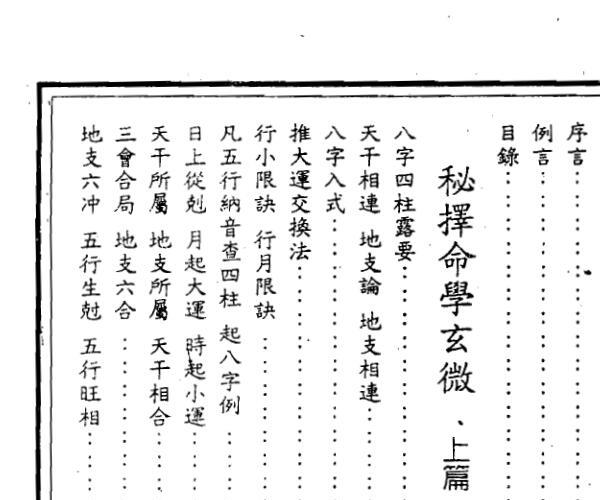 序言
例言
目錄
秘擇命學玄微、上篇
八字四柱露要
天干相連 地支論 地支相連
八字入式
推大運交換法
行小限訣 行月限訣
凡五行納音查四柱 起八字例
日上從剋 月起大運 時起小運
天干所屬 地支所屬 天干相合
三會合局 地支六合
地支六冲 五行生尅 五行旺相